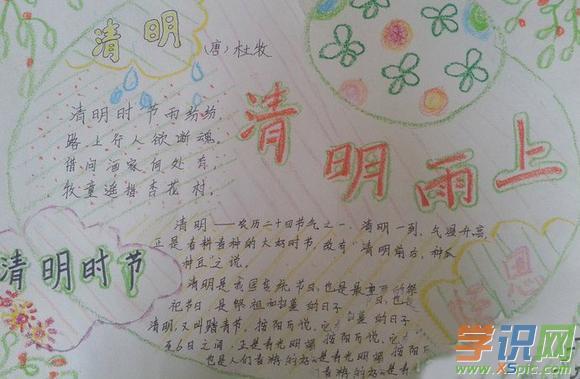 清明
(唐)杜牧
清明时节雨纷纷
路上行人欲断魂
借问酒家何处有
牧童遥指杏花村
清明雨上
清明时节
清明——农历二十四节气之一,清明一到,气温升高,
正是春耕春种的大好时节,故有"清明前后,种瓜
种豆"之说。
清明是我国传统节日,也是最重要的祭
祀节日,是祭祖和扫墓的日子
清明,又叫踏青节,按阳历说,它
至6日之间,正是春光明媚
也是人们春游的好
思
学识网
www.XSpic.com